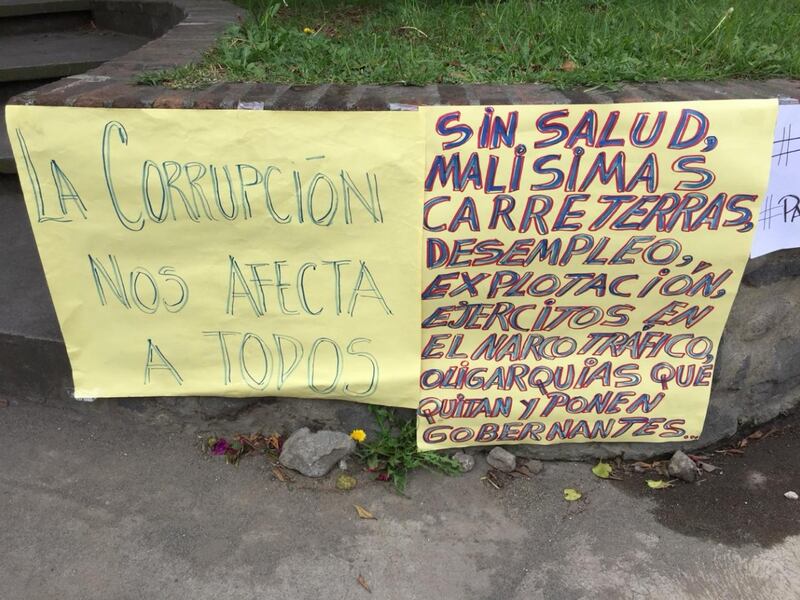 LA CORRUPCIÓN
NOS AFECTA
A TODOS
SIN SALUD,
MALISIMAS
CARRETERRAS,
DESEMPLEO,
EXPLOTACIÓN,
EJERCITOS EN
EL NARCOTRÁFICO,
OLIGARQUIAS QUE
QUITAN Y PONEN
GOBERNANTES...
#
#PA